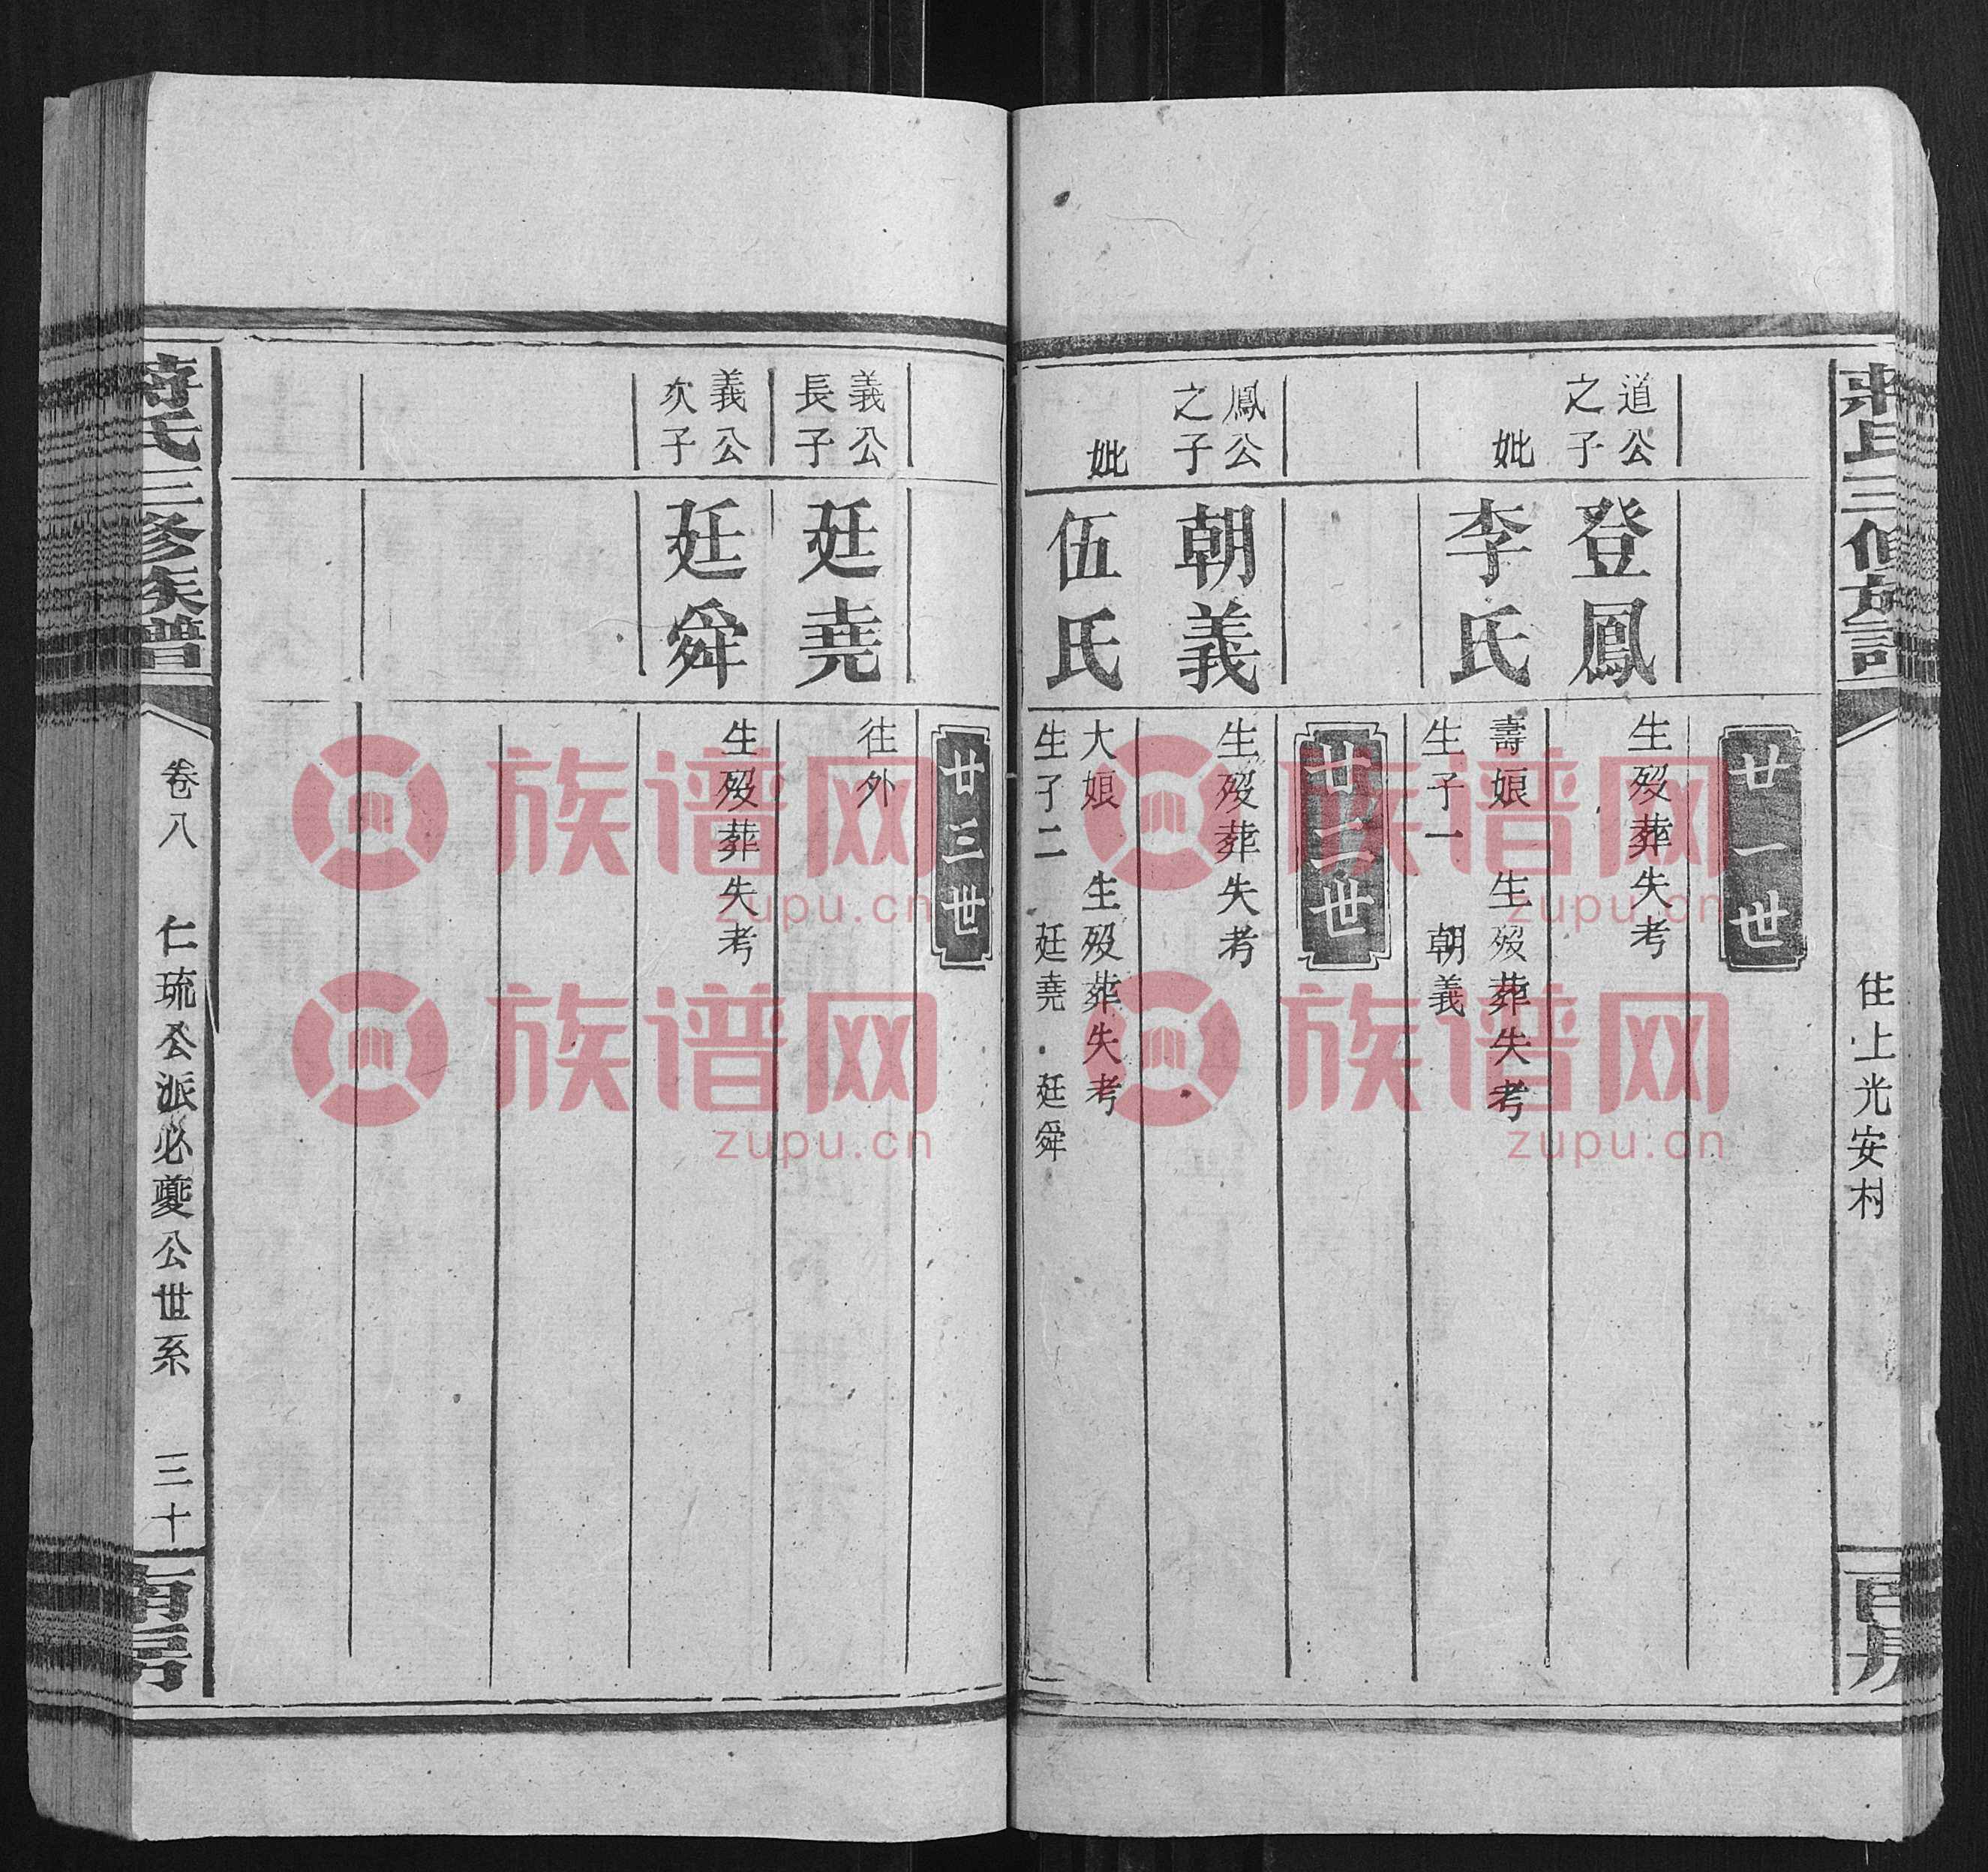 蔣氏三修族譜
住上光安村
南房
廿一世
道公之子
登鳳
生歿葬失考
妣
李氏
壽娘 生歿葬失考
生子一 朝義
廿二世
鳳公之子
朝義
生歿葬失考
妣
伍氏
大娘 生歿葬失考
生子二 廷堯 廷舜
廿三世
義公長子
廷堯
往外
義公次子
廷舜
生歿葬失考
蔣氏三修族譜
卷八 仁琉公派必夔公世系 三十
南房
族谱网
zupu.cn
族谱网
zupu.cn
族谱网
zupu.cn
族谱网
zupu.cn